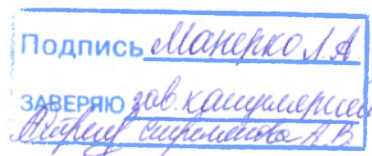 Подпись Манерко Л.А
ЗАВЕРЯЮ зав. канцелярией
А.В.